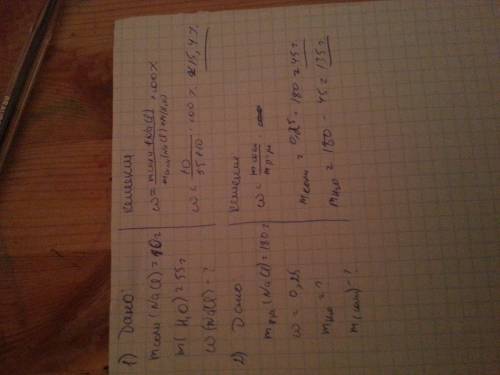 1) Дано:
m соли (NaCl) = 10 г
m(H₂O) = 55 г
ω(NaCl) = ?
Решение
ω = m соли (NaCl) / m соли (NaCl) + m(H₂O) · 100%
ω = 10 / 55+10 · 100% ≈ 15,4%
2) Дано
m р-ра (NaCl) = 180 г
ω = 0,25
m H₂O = ?
m(соли) = ?
Решение
ω = m соли / m р-ра
m соли = 0,25 · 180 = 45 г
m H₂O = 180 - 45 = 135 г